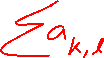 ∑a_{k,l}